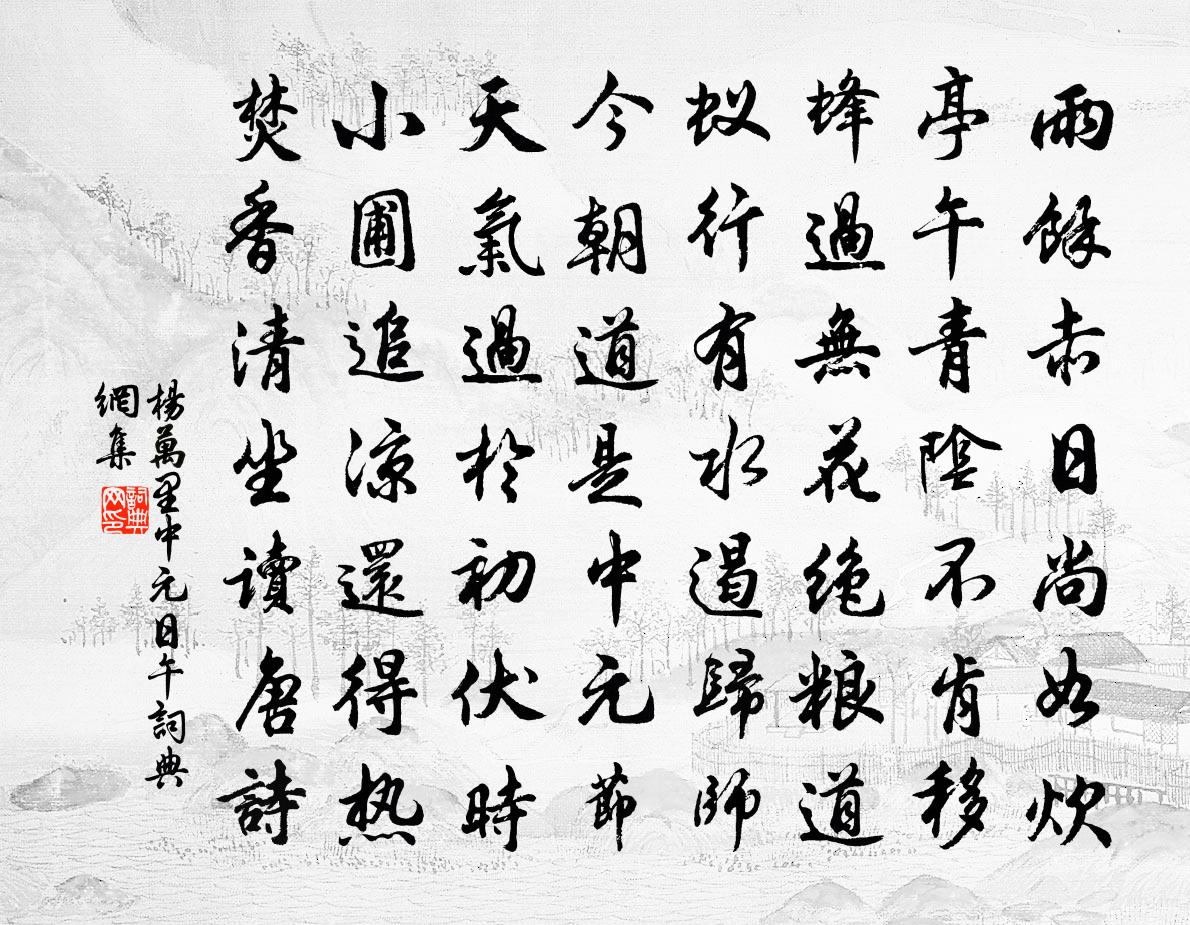 雨餘赤日尚如炊
亭午青陰不肯移
蜂過無花絶粮道
蚁行有水遏歸師
今朝道是中元節
天氣過於初伏時
小圃追凉還得热
焚香清坐讀唐詩
楊萬里中元日午詞典
網集
詞典
网印